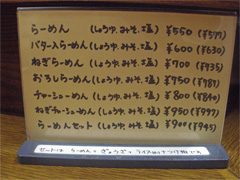 らーめん(しょうゆ.みそ.塩) ¥550(¥577)
バターらーめん(しょうゆ.みそ.塩) ¥600(¥630)
ねぎらーめん(しょうゆ.みそ.塩) ¥700(¥735)
おろしらーめん(しょうゆ.みそ.塩) ¥750(¥787)
チャーシューめん(しょうゆ.みそ.塩) ¥800(¥840)
ねぎチャーシューめん(しょうゆ.みそ.塩) ¥950(¥997)
らーめんセット(しょうゆ.みそ.塩) ¥900(¥945)
らーめん・ぎょうざ・ライス